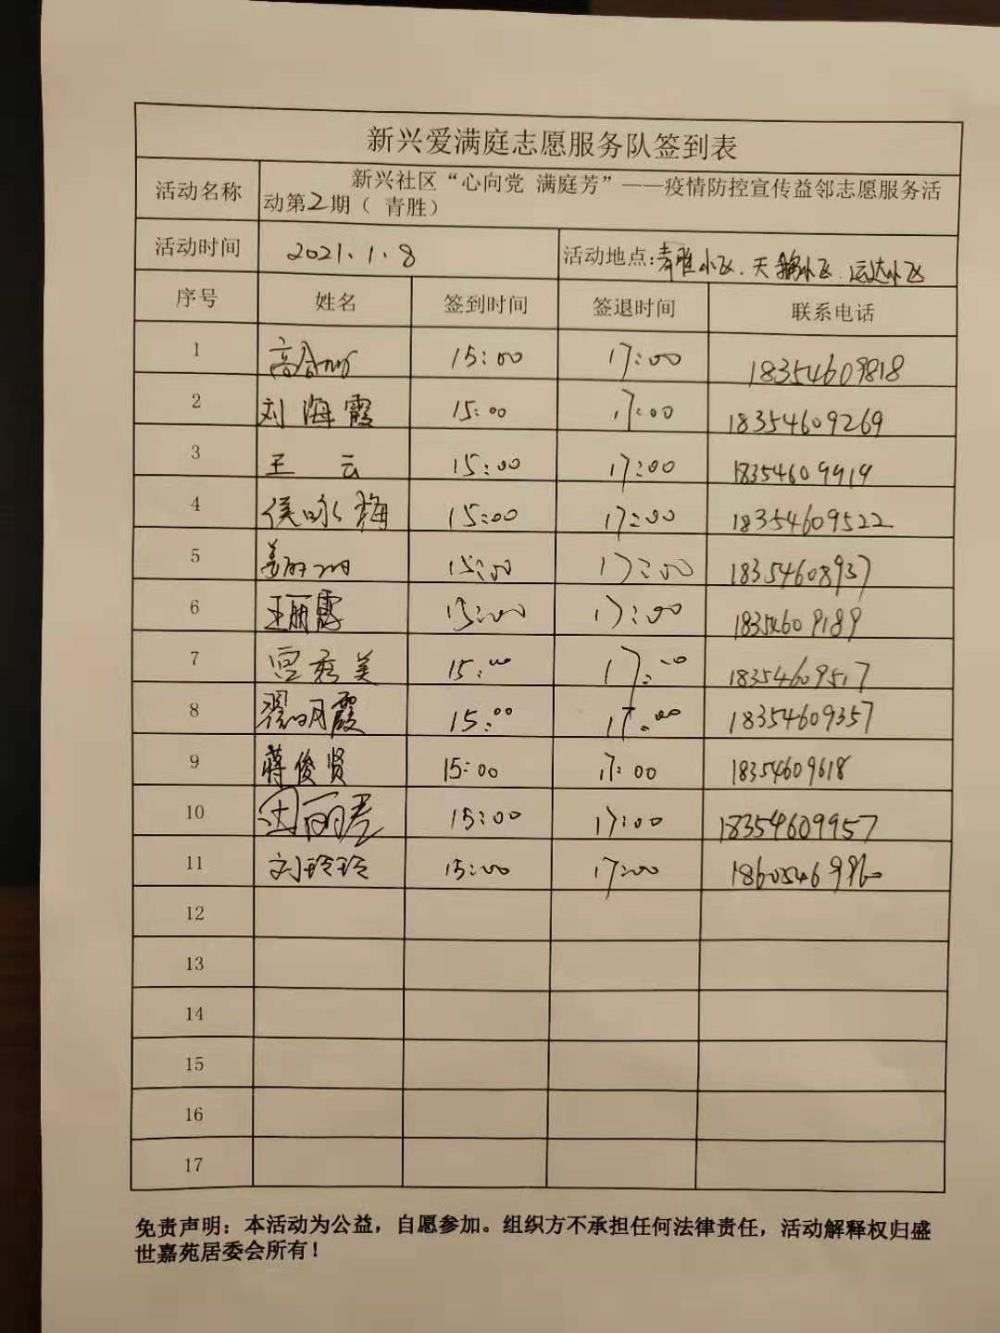 新兴爱满庭志愿服务队签到表
活动名称 新兴社区“心向党 满庭芳”——疫情防控宣传益邻志愿服务活
动第2期（ 青胜）
活动时间 2021.1.8 活动地点:青胜小区、天鹅小区、运达小区
序号 姓名 签到时间 签退时间 联系电话
1 15:00 17:00 18354609818
2 刘海霞 15:00 17:00 18354609269
3 王云 15:00 17:00 18354609919
4 侯咏梅 15:00 17:00 18354609522
5 15:00 17:00 18354608937
6 王丽霞 15:00 17:00 18354609189
7 宫秀美 15:00 17:00 18354609517
8 翟明霞 15:00 17:00 18354609357
9 蒋俊贤 15:00 17:00 18354609618
10 15:00 17:00 18354609957
11 刘玲玲 15:00 17:00
12
13
14
15
16
17
免责声明：本活动为公益，自愿参加。组织方不承担任何法律责任，活动解释权归盛
世嘉苑居委会所有！